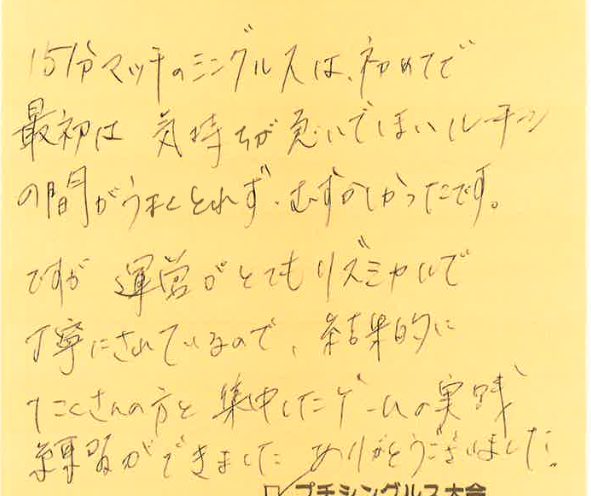 15分マッチのシングルスは、初めてで
最初は 気持ちが急いでしまいルーチン
の間がうまくとれず、むずかしかったです。
ですが 運営がとてもリズミカルで
丁寧にされているので、結果的に
たくさんの方と集中したゲームの実践
練習ができました ありがとうございました。
プチシングルス大会